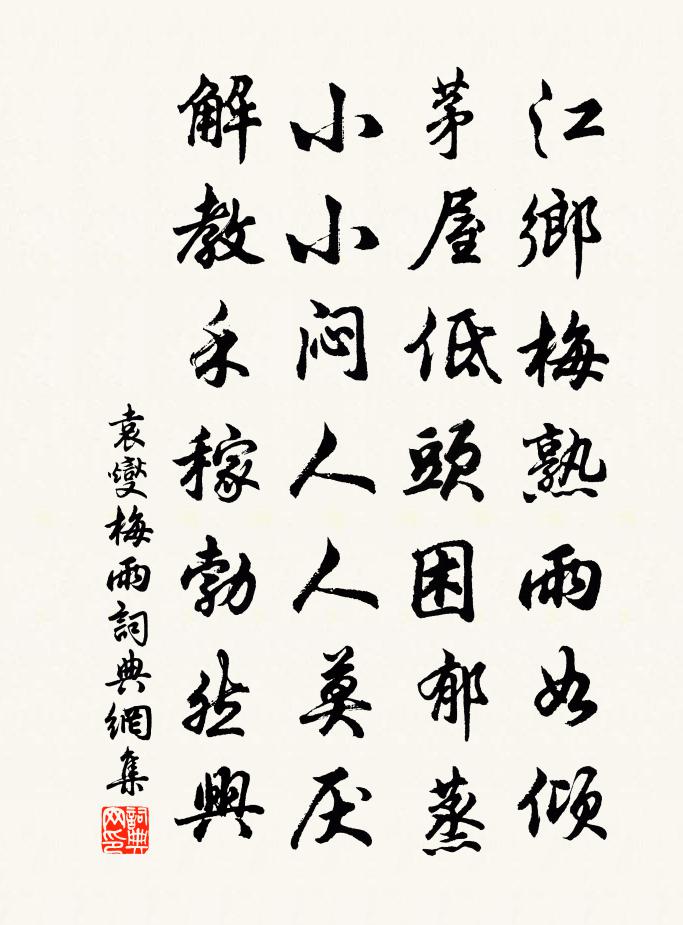 江鄉梅熟雨如傾
茅屋低頭困郁蒸
小小闷人人莫厌
解教禾稼勃然興
袁燮梅雨詞典網集
詞典网印